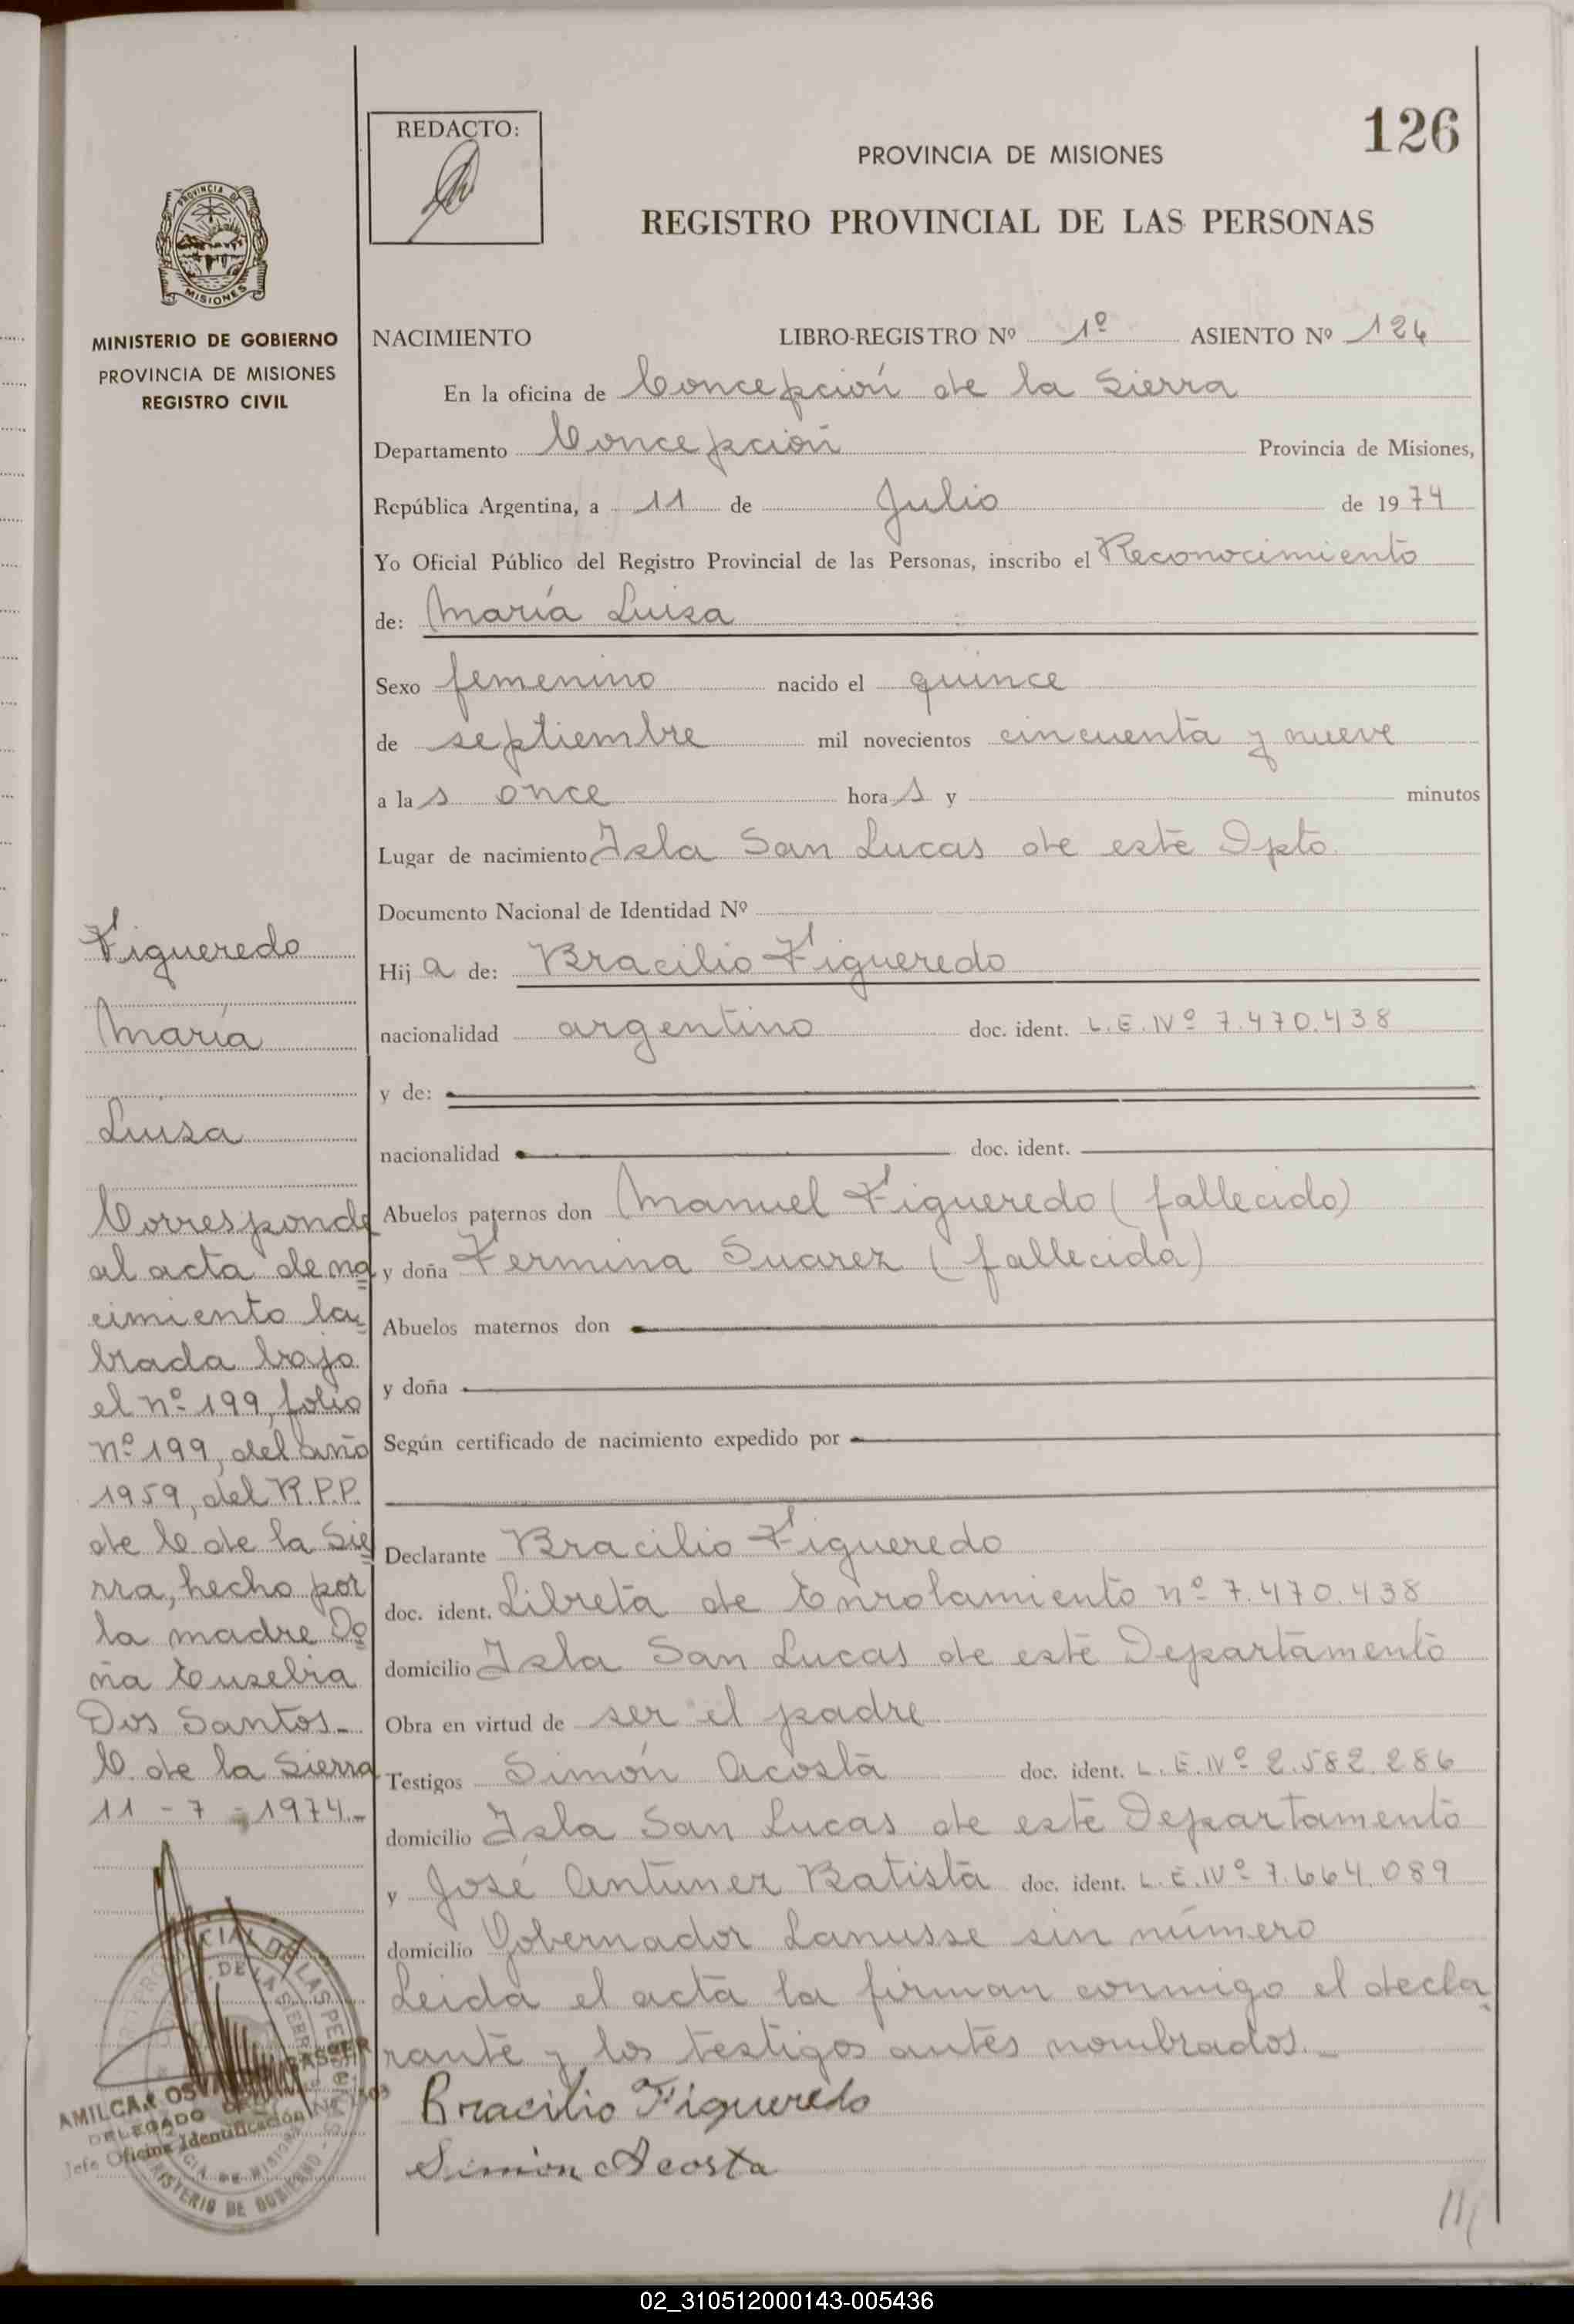 126
REDACTO:
PROVINCIA DE MISIONES
REGISTRO PROVINCIAL DE LAS PERSONAS
PROVINCIA DE
MISIONES
MINISTERIO DE GOBIERNO
PROVINCIA DE MISIONES
REGISTRO CIVIL
NACIMIENTO LIBRO-REGISTRO Nº 1º ASIENTO Nº 126
En la oficina de Concepción de la Sierra
Departamento Concepción Provincia de Misiones,
República Argentina, a 11 de Julio de 1974
Yo Oficial Público del Registro Provincial de las Personas, inscribo el Reconocimiento
de: María Luisa
Sexo femenino nacido el quince
de septiembre mil novecientos cincuenta y nueve
a las once horas y minutos
Lugar de nacimiento Isla San Lucas de este Dpto.
Documento Nacional de Identidad Nº
Hija de: Bracilio Figueredo
nacionalidad argentino doc. ident. L.E. Nº 7.470.438
y de:
nacionalidad doc. ident.
Abuelos paternos don Manuel Figueredo (fallecido)
y doña Fermina Suarez (fallecida)
Abuelos maternos don
y doña
Según certificado de nacimiento expedido por
Declarante Bracilio Figueredo
doc. ident. Libreta de Enrolamiento nº 7.470.438
domicilio Isla San Lucas de este Departamento
Obra en virtud de ser el padre
Testigos Simón Acosta doc. ident. L.E. Nº 2.582.286
domicilio Isla San Lucas de este Departamento
y José Antunez Batista doc. ident. L.E. Nº 7.664.089
domicilio Gobernador Lanusse sin número
Leida el acta la firman conmigo el decla
rante y los testigos antes nombrados.-
Bracilio Figueredo
Simón Acosta
Figueredo
María
Luisa
Corresponde
al acta de na
cimiento la
brada bajo
el nº 199, folio
nº 199, del año
1959, del R.P.P.
de C. de la Sie
rra, hecho por
la madre Do
ña Eusebia
Dos Santos.-
C. de la Sierra
11-7-1974.-
AMILCAR
DELEGADO
Jefe Oficina Identificación
MINISTERIO DE GOBIERNO
02_310512000143-005436